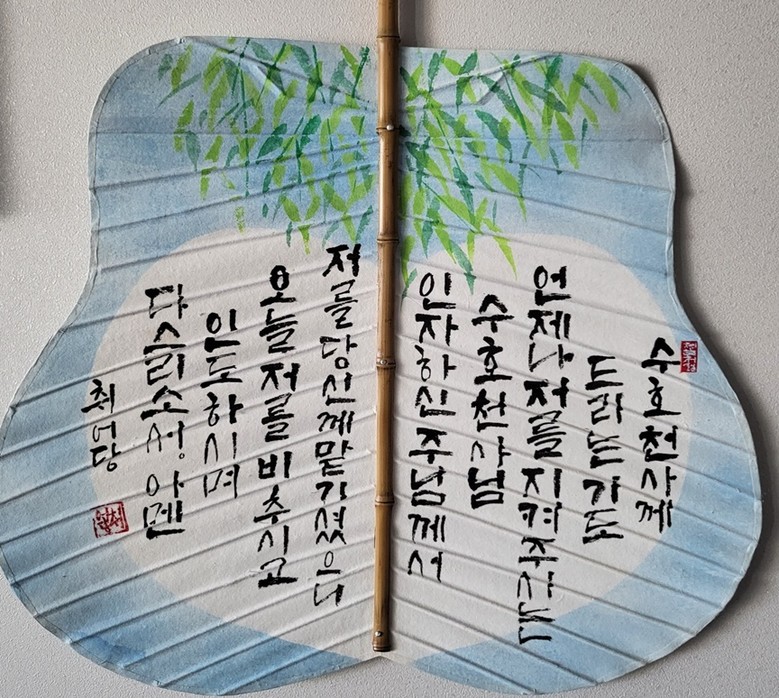 수호천사께
드리는 기도
언제나 저를 지켜주시는
수호천사님
인자하신 주님께서
저를 당신께 맡기셨으니
오늘 저를 비추시고
인도하시며
다스리소서. 아멘
취어당